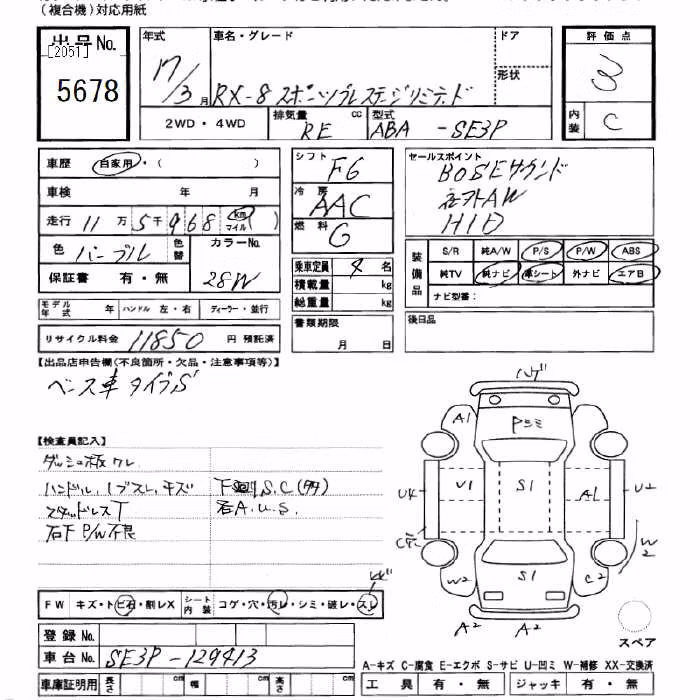 (複合機)対応用紙
出品No.
[2051]
5678
年式
17/3月
車名・グレード
RX-8 スポーツプレステージリミテッド
ドア
形状
評価点
3
内装
C
2WD・4WD
排気量 RE cc
型式 ABA-SE3P
車歴 自家用・( )
車検 年 月
走行 11万5千968 km マイル( )
色 パープル
色替
カラーNo. 28W
保証書 有・無
シフト F6
冷房 AAC
燃料 G
乗車定員 4名
積載量 kg
総重量 kg
セールスポイント
BOSEサウンド
社外AW
HID
装備品
S/R 純A/W P/S P/W ABS
純TV 純ナビ 革シート 外ナビ エアB
ナビ型番:
モデル年式 年 ハンドル 左・右 ディーラー・並行
リサイクル料金 11850 円 預託済
書類期限
月 日
後日品
【出品店申告欄(不良箇所・欠品・注意事項等)】
ベース車 タイプS
【検査員記入】
ダッシュ板 ワレ
ハンドル、Iブスレ、キズ
下回りS.C(多)
スタッドレスT
右A.U.S.
右下 P/W不良
ハゲ
A1
Pシミ
U4
U1
S1
A1
U2
W2
W2
S1
C2
A2
A2
スペア
FW キズ・トビ石・割レX
シート内装 コゲ・穴・汚レ・シミ・破レ・スレ
登録No.
車台No. SE3P-129413
車庫証明用 長さ cm 幅 cm 高さ cm
A-キズ C-腐食 E-エクボ S-サビ U-凹ミ W-補修 XX-交換済
工具 有・無 ジャッキ 有・無